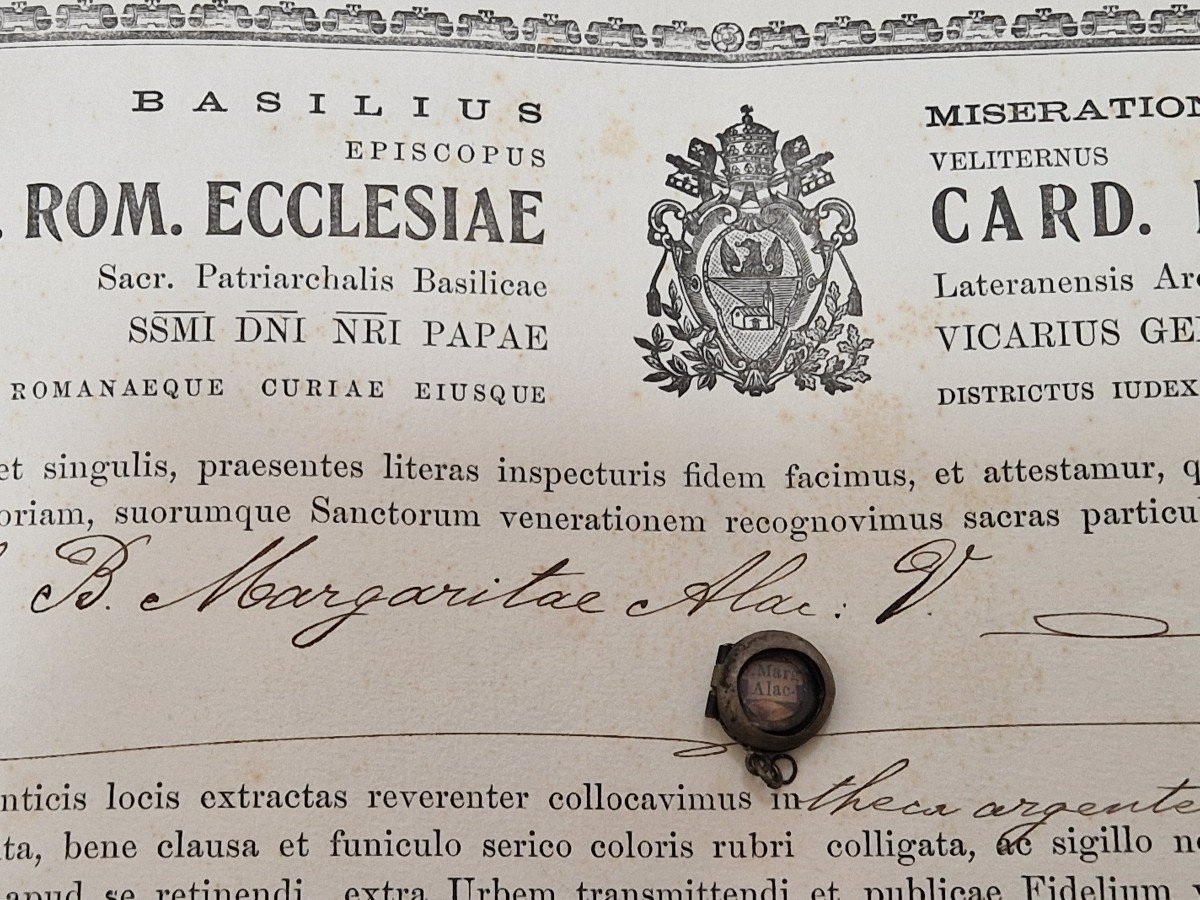 BASILIUS MISERATION
EPISCOPUS VELITERNUS
. ROM. ECCLESIAE CARD.
Sacr. Patriarchalis Basilicae Lateranensis Arc
SSMI DNI NRI PAPAE VICARIUS GE
ROMANAEQUE CURIAE EIUSQUE DISTRICTUS IUDEX
et singulis, praesentes literas inspecturis fidem facimus, et attestamur, q
oriam, suorumque Sanctorum venerationem recognovimus sacras particu
B. Margaritae Alac: V.
Marg
Alac-
nticis locis extractas reverenter collocavimus in theca argente
ta, bene clausa et funiculo serico coloris rubri colligata, ac sigillo no
apud se retinendi, extra Urbem transmittendi et publicae Fidelium v